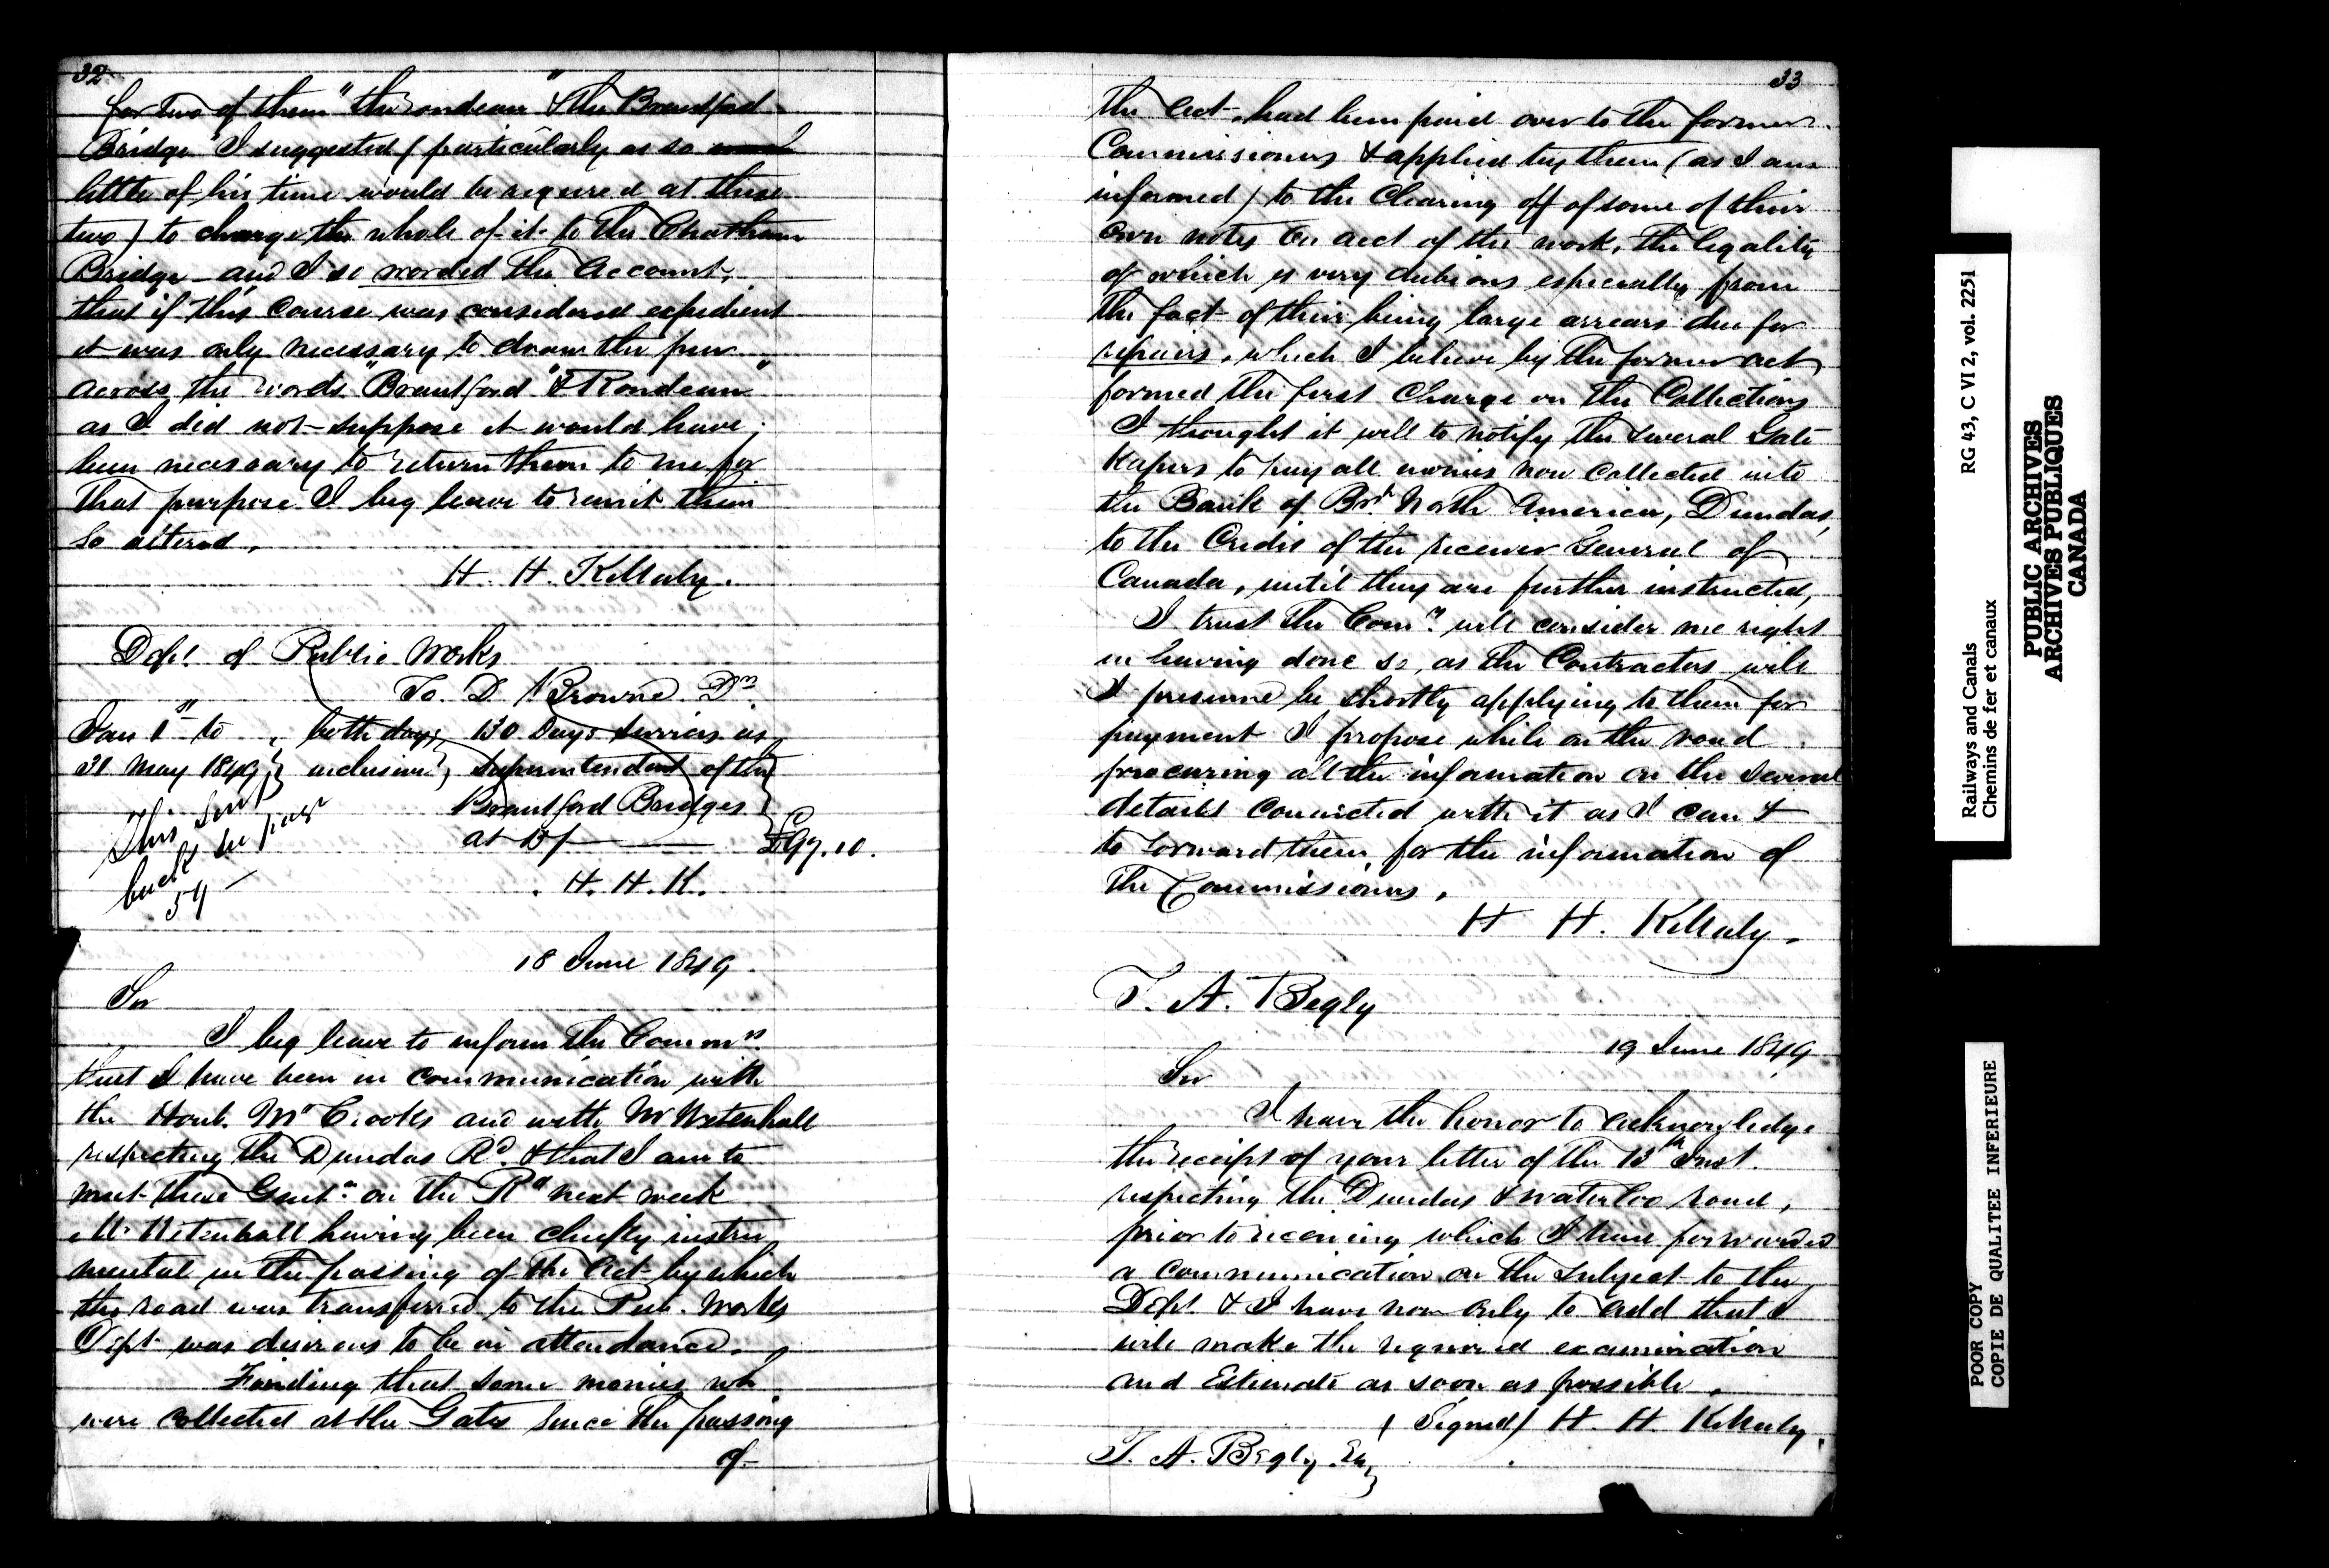 32
for two of them "the Rondeau" & the Brantford
Bridge" I suggested (particularly as so
little of his time would be required at these
two) to charge the whole of it to the Chatham
Bridge and I so worded the Account,
that if this course was considered expedient
it was only necessary to draw the pen
across the words "Brantford" & Rondeau"
as I did not suppose it would have
been necessary to return them to me for
that purpose I beg leave to remit them
so altered.
H. H. Killaly.
Dept. of Public Works
To D. Browne Dr.
Jan 1st to } both days } 130 Days Services as
31 May 1849 } inclusive } Superintendent of the
Brantford Bridges
at 15/ — £97.10.
This sent
back see page
59 —
H. H. K.
18 June 1849.
Sir
I beg leave to inform the Commrs.
that I have been in communication with
the Honb. Mr Crooks and with Mr Wetenhall
respecting the Dundas Rd. & that I am to
meet these Gentn. on the Rd next week
Mr Wetenhall having been chiefly instru
mental in the passing of the Act by which
the road was transferred to the Pub. Works
Dept was desirous to be in attendance.
Finding that some monies wh
were collected at the Gates since the passing
of
33
the Act had been paid over to the former
Commissioners & applied by them (as I am
informed) to the clearing off of some of their
own notes on acct of the work, the legality
of which is very dubious especially from
the fact of their being large arrears due for
repairs, which I believe by the former act
formed the first Charge on the Collections
I thought it well to notify the several Gate
Keepers to pay all monies now collected into
the Bank of Brh North America, Dundas,
to the Credit of the receiver General of
Canada, until they are further instructed,
I trust the Comrs. will consider me right
in having done so, as the Contractors will
I presume be shortly applying to them for
payment I propose while on the road
procuring all the information on the several
details connected with it as I can &
to forward them for the information of
The Commissioners.
H. H. Killaly.
T. A. Begly
19 June 1849
Sir
I have the honor to acknowledge
the receipt of your letter of the 13th Inst.
respecting the Dundas & Waterloo road,
prior to receiving which I have forwarded
a communication on the subject to the
Dept. & I have now only to add that I
will make the required examination
and Estimate as soon as possible.
(Signed) H. H. Killaly.
T. A. Begly. Esq
Railways and Canals RG 43, C VI 2, vol. 2251
Chemins de fer et canaux
PUBLIC ARCHIVES
ARCHIVES PUBLIQUES
CANADA
POOR COPY
COPIE DE QUALITEE INFERIEURE